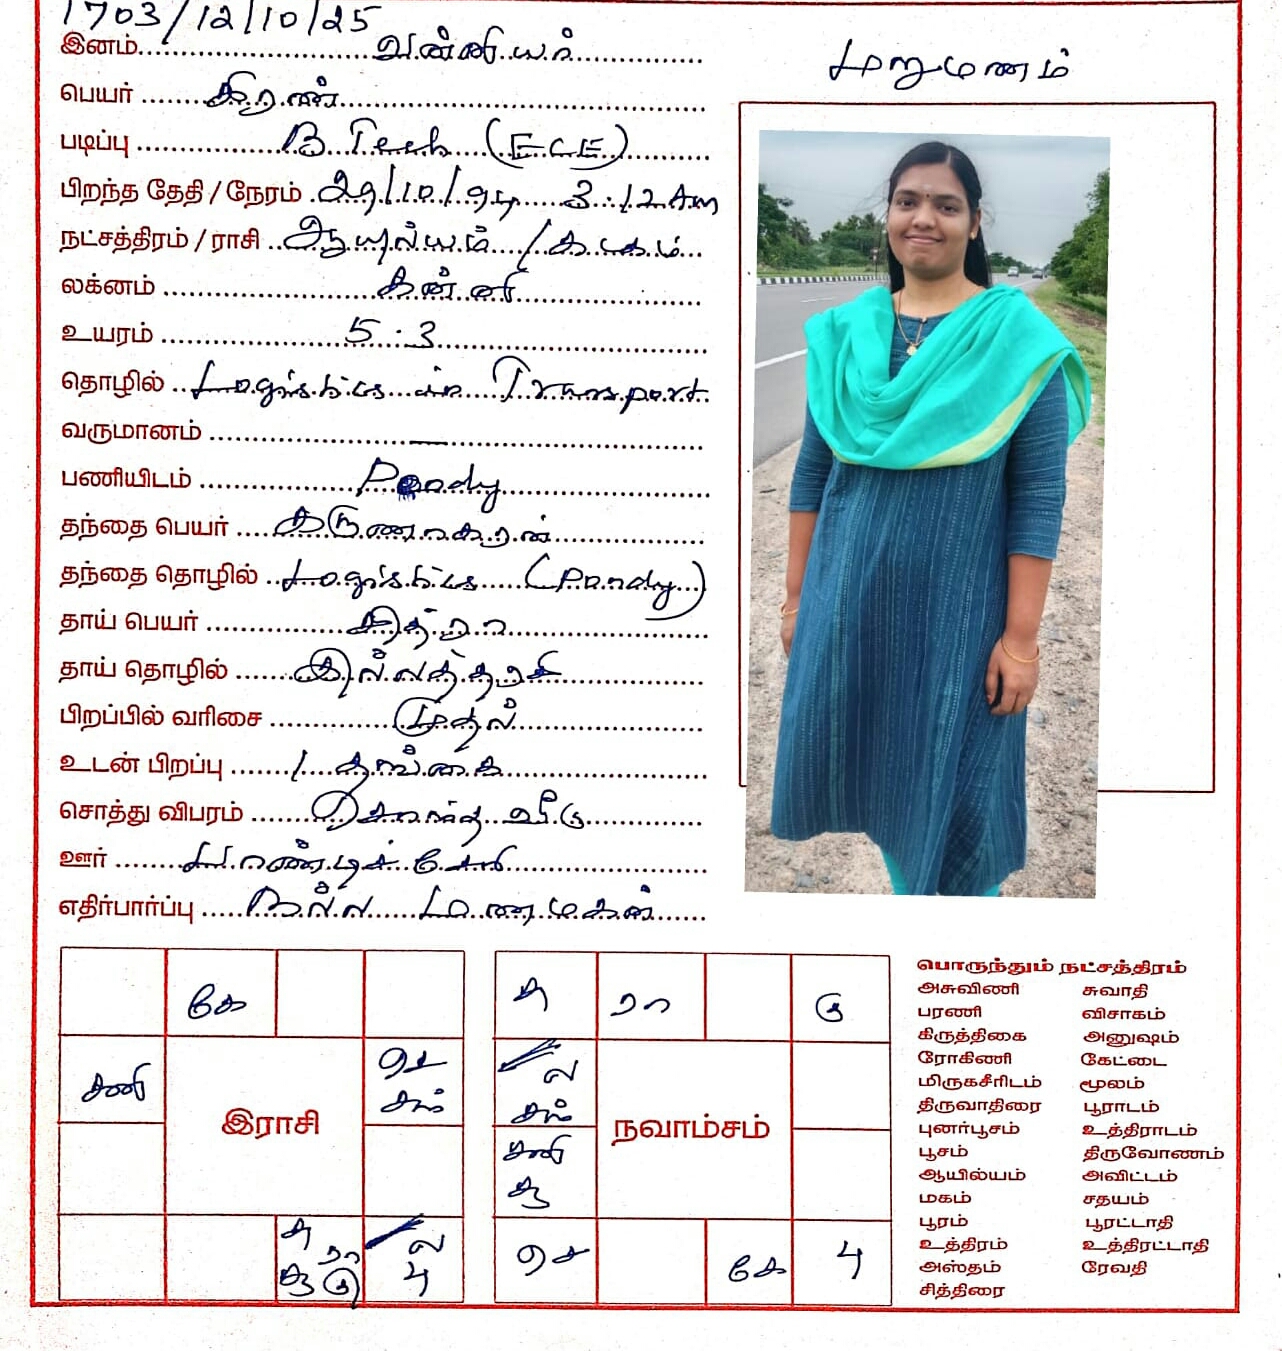 1703/12/10/25
இனம் வன்னியர்
மறுமணம்
பெயர் கிரண்
படிப்பு B Tech (ECE)
பிறந்த தேதி / நேரம் 29/10/94 3.12 Am
நட்சத்திரம் / ராசி ஆயில்யம் / கடகம்
லக்னம் கன்னி
உயரம் 5.3
தொழில் Logistics in Transport
வருமானம் —
பணியிடம் Pondy
தந்தை பெயர் கருணாகரன்
தந்தை தொழில் Logistics (Pondy)
தாய் பெயர் சித்ரா
தாய் தொழில் இல்லத்தரசி
பிறப்பில் வரிசை முதல்
உடன் பிறப்பு 1 தங்கை
சொத்து விபரம் சொந்த வீடு
ஊர் பாண்டிச்சேரி
எதிர்பார்ப்பு நல்ல மணமகன்
கே
சனி
செ
சந்
இராசி
சு ரா
சு கு
ல
பு
சு ரா கு
ல
சந்
சனி
சு
நவாம்சம்
செ கே பு
பொருந்தும் நட்சத்திரம்
அசுவிணி சுவாதி
பரணி விசாகம்
கிருத்திகை அனுஷம்
ரோகிணி கேட்டை
மிருகசீரிடம் மூலம்
திருவாதிரை பூராடம்
புனர்பூசம் உத்திராடம்
பூசம் திருவோணம்
ஆயில்யம் அவிட்டம்
மகம் சதயம்
பூரம் பூரட்டாதி
உத்திரம் உத்திரட்டாதி
அஸ்தம் ரேவதி
சித்திரை